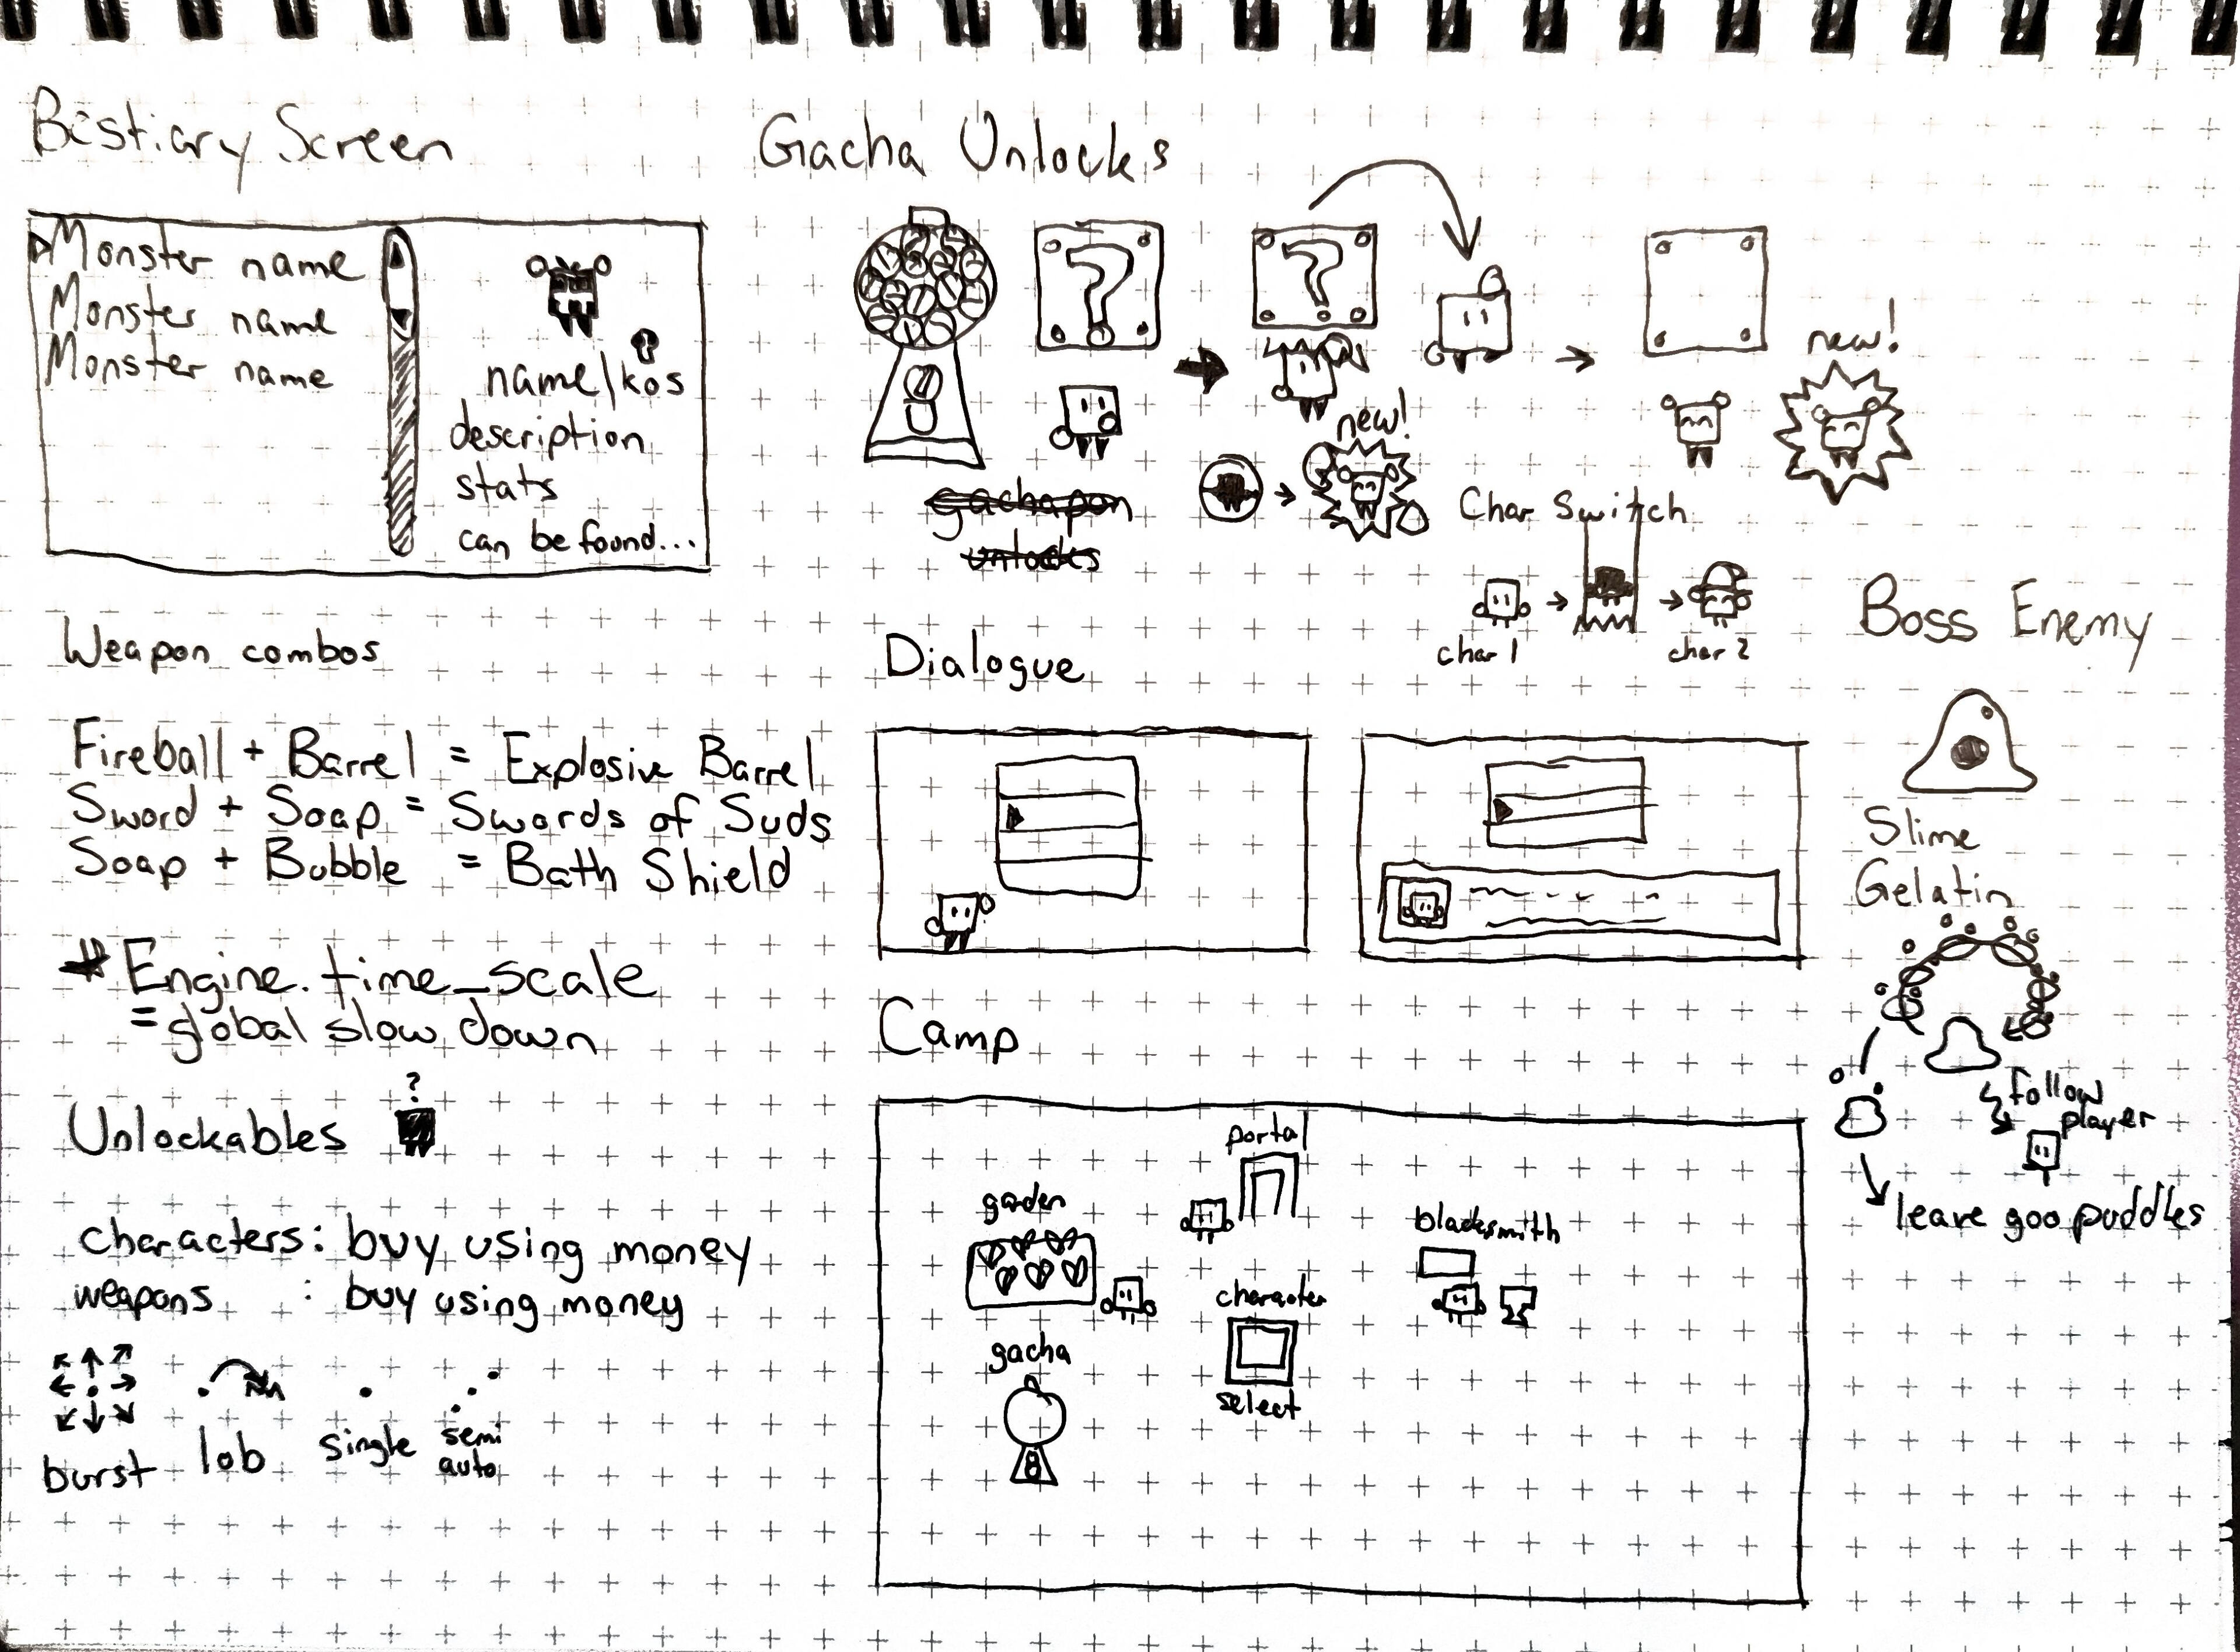 Bestiary Screen
Monster name
Monster name
Monster name
name/kos
description
stats
can be found...
Gacha Unlocks
?
?
new!
gachapon
unlocks
new!
Char Switch
char 1
char 2
Weapon combos
Fireball + Barrel = Explosive Barrel
Sword + Soap = Swords of Suds
Soap + Bubble = Bath Shield
# Engine.time_scale
= global slow down
Unlockables
?
characters: buy using money
weapons : buy using money
burst
lob
single
semi
auto
Dialogue
Camp
portal
garden
blacksmith
character
select
gacha
Boss Enemy
Slime
Gelatin
follow
player
leave goo puddles